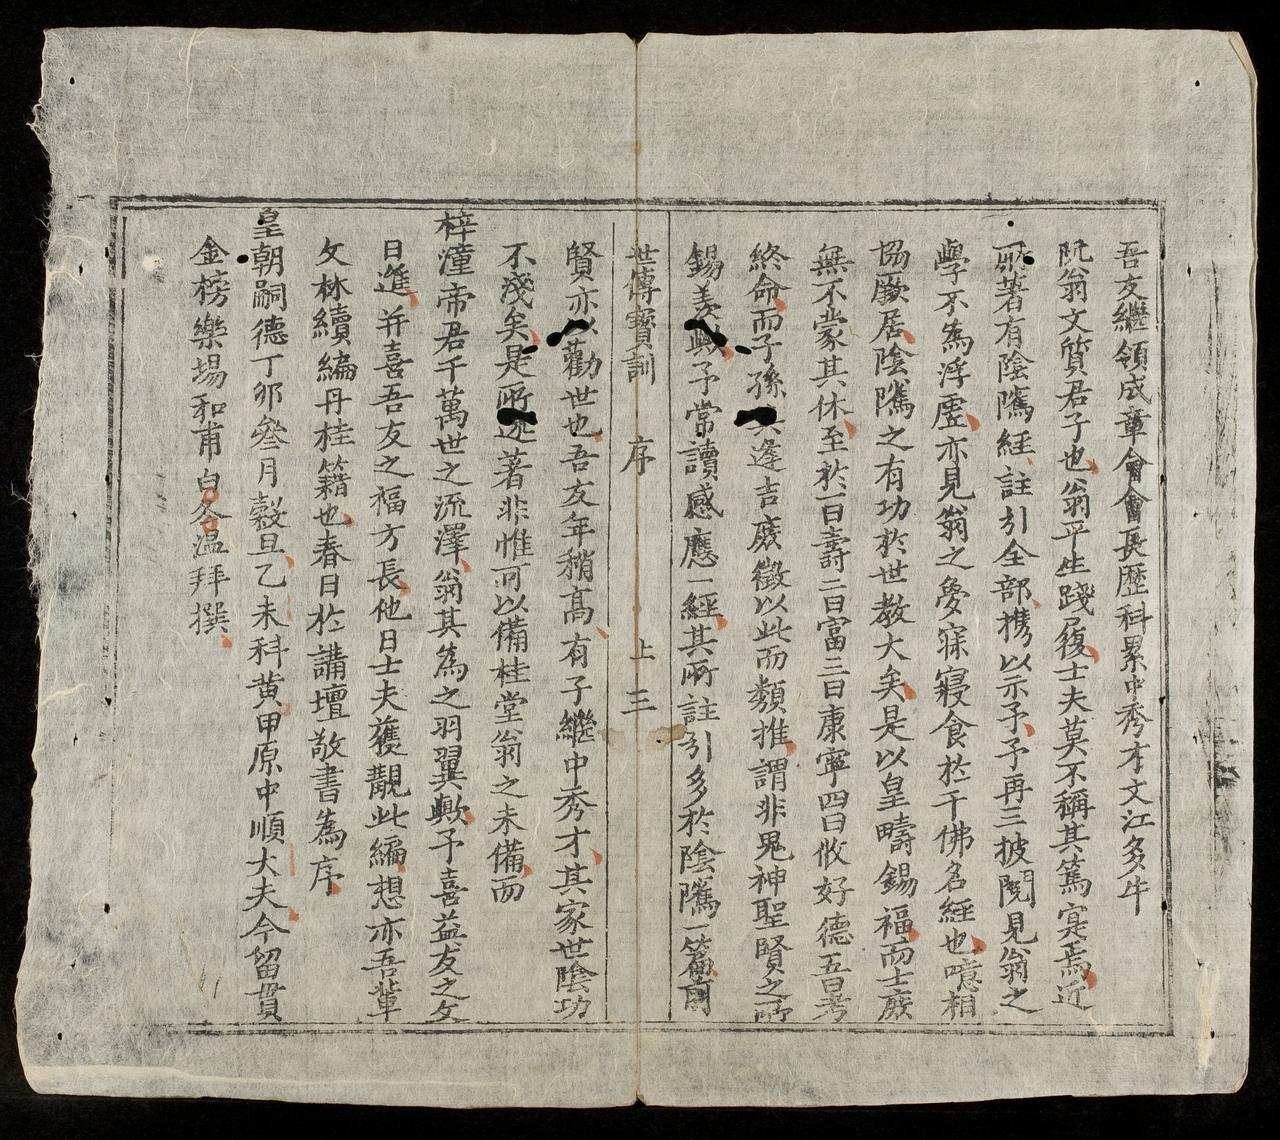 吾友繼領成章會會長歷科累中秀才文江多牛
阮翁文質君子也翁平生踐履士夫莫不稱其篤寔焉近
所著有陰隲經註引全部携以示予予再三披閱見翁之
學不為浮虛亦見翁之夢寐寢食於千佛名經也噫相
協厥居陰隲之有功於世教大矣是以皇疇錫福而士庶
無不蒙其休至於一曰壽二曰富三曰康寧四曰攸好德五曰考
終命而子孫其逢吉庶徵以此而類推謂非鬼神聖賢之所
錫羨歟予常讀感應一經其所註引多於陰隲一篇前
世傳寶訓 序 上 三
賢亦以勸世也吾友年稍高有子繼中秀才其家世陰功
不淺矣是所述著非惟可以備桂堂翁之未備而
梓潼帝君千萬世之流澤翁其為之羽翼歟予喜益友之文
日進并喜吾友之福方長他日士夫獲覩此編想亦吾輩
文林續編丹桂籍也春日於講壇敬書為序
皇朝嗣德丁卯叄月穀旦乙未科黃甲原中順大夫今留貫
金榜樂場和甫白冬温拜撰